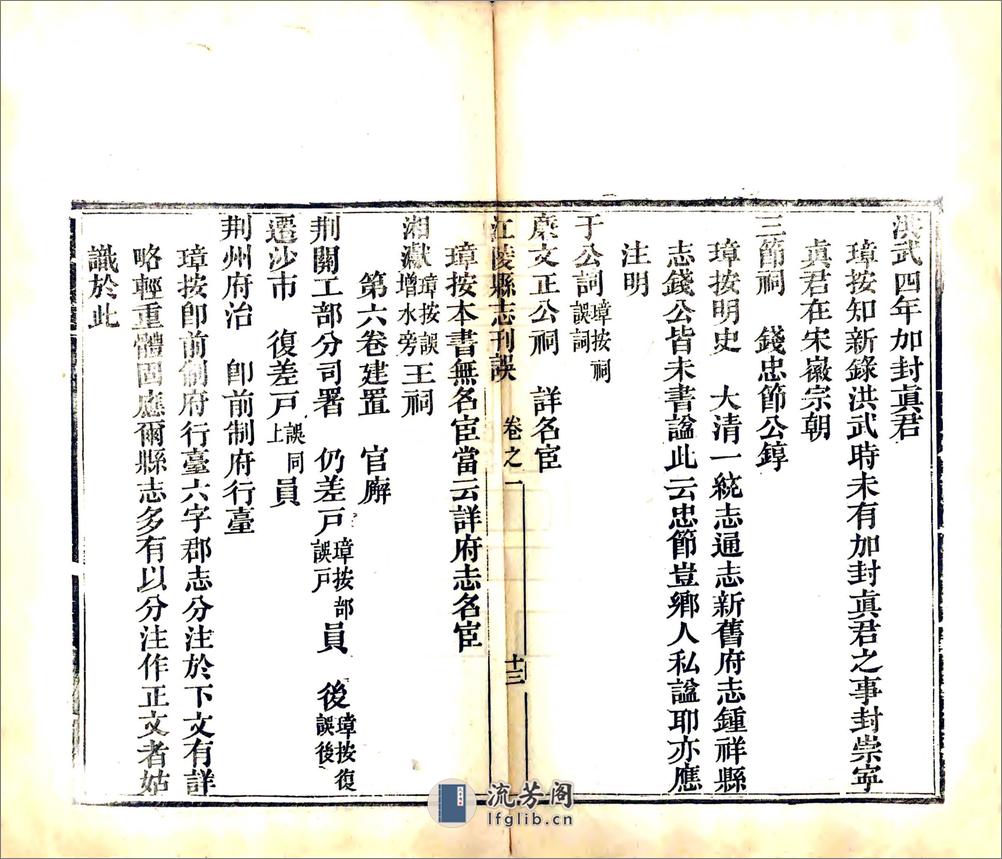 洪武四年加封眞君
璋按知新錄洪武時未有加封眞君之事封崇寧
眞君在宋徽宗朝
三節祠　錢忠節公錞
璋按明史　大清一統志通志新舊府志鍾祥縣
志錢公皆未書諡此云忠節豈鄉人私諡耶亦應
注明
于公詞璋按祠誤詞
康文正公祠　詳名宦
江陵縣志刊誤　卷之一　十三
璋按本書無名宦當云詳府志名宦
湘獻璋按誤增水旁王祠
第六卷建置　官廨
荆關工部分司署　仍差戸璋按部誤戸員　後璋按復誤後
遷沙市　復差戸誤同上員
荆州府治　卽前制府行臺
璋按卽前制府行臺六字郡志分注於下文有詳
略輕重體固應爾縣志多有以分注作正文者姑
識於此
流芳阁
lfglib.cn